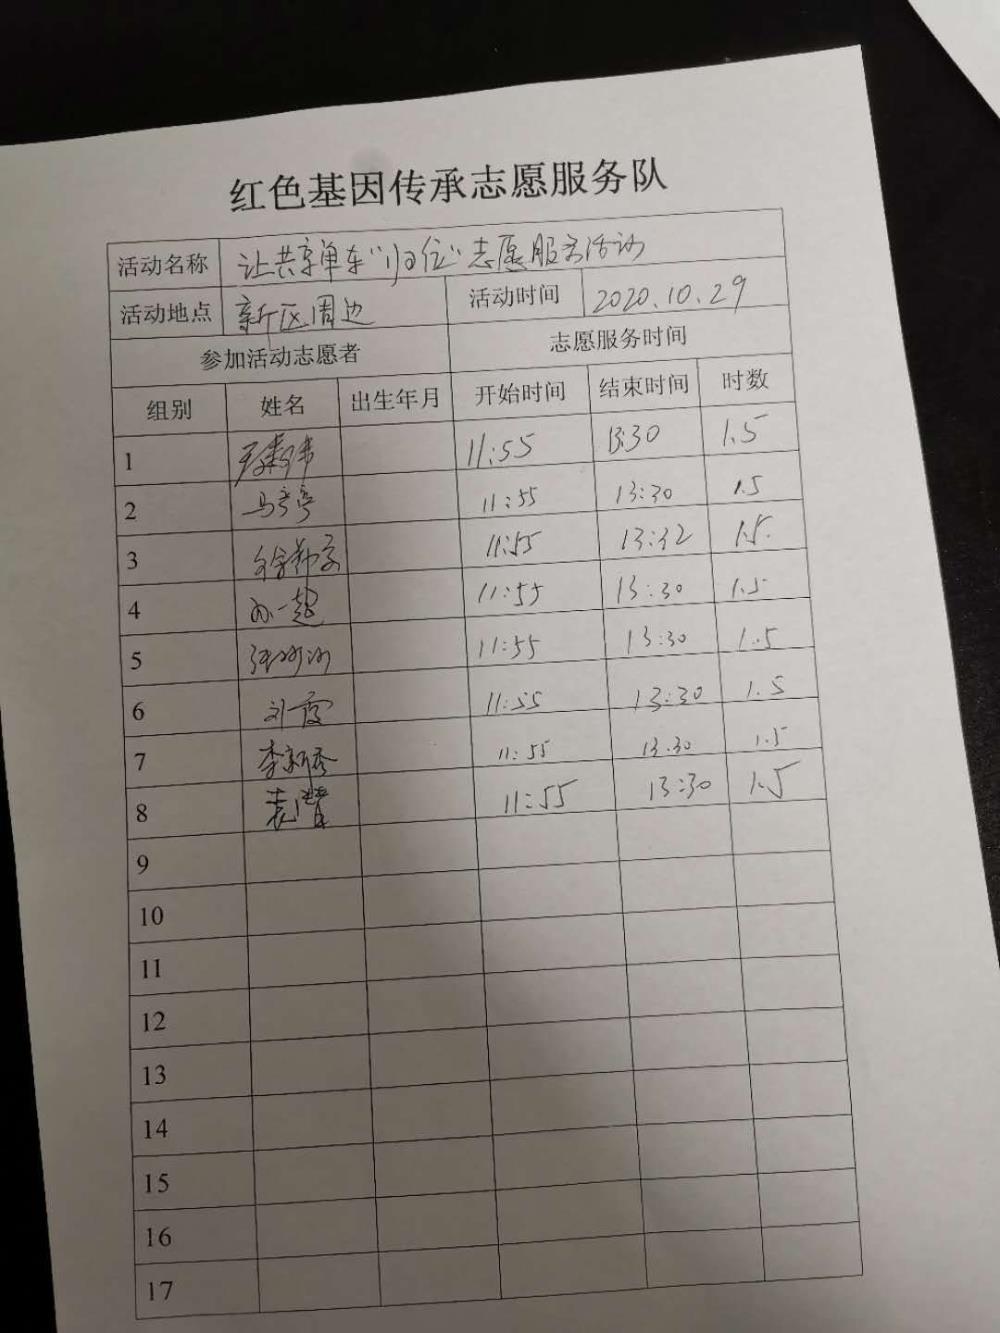 红色基因传承志愿服务队
活动名称 让共享单车“归位”志愿服务活动
活动地点 新区周边 活动时间 2020.10.29
参加活动志愿者 志愿服务时间
组别 姓名 出生年月 开始时间 结束时间 时数
1 11:55 13:30 1.5
2 马亭亭 11:55 13:30 1.5
3 11:55 13:32 1.5.
4 孙一超 11:55 13:30 1.5
5 11:55 13:30 1.5
6 刘霞 11:55 13:30 1.5
7 李新秀 11:55 13.30 1.5
8 11:55 13:30 1.5
9
10
11
12
13
14
15
16
17